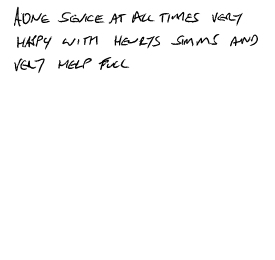 AONE SEVICE AT ALL TIMES VERY
HAPPY WITH HENRYS SIMMS AND
VERY HELP FULL